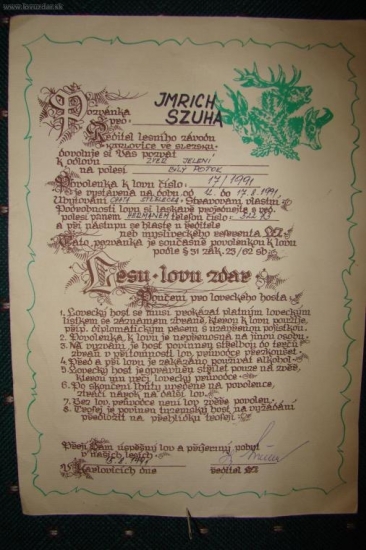 www.lovurdar.sk
Pozvánka
pro: JMRICH
SZUHA
Ředitel lesního závodu
Karlovice ve Slezsku
dovoluje si Vás pozvat
k odlovu JELENÍ
na polesí BÍLÝ POTOK
Povolenka k lovu číslo: 17/1991
je vystavena na dobu od do 17. 8. 1991
Ubytování CHATA Stravování vlastní
Podrobnosti lovu si laskavě projednejte s ved.
polesí panem HEŘMANEM telefon číslo:
a při nástupu se hlaste u ředitele
neb mysliveckého referenta LZ
Tato pozvánka je současně povolenkou k lovu
podle § 31 zák. 23/62 sb.
Lesu · lovu zdar
Poučení pro loveckého hosta
1. Lovecký host se musí prokázat platným loveckým
lístkem se záznamem zbraně, kterou k lovu použije,
příp. diplomatickým pasem s uzavřenou pojistkou.
2. Povolenka k lovu je nepřenosná na jinou osobu.
3. Na vyzvání je host povinnen střelbou do terče
zbraň v přítomnosti lov. průvodce přezkoušet.
4. Před a při lovu je zakázáno používat alkohol.
5. Lovecký host je oprávněn střílet pouze na zvěř,
kterou mu určí lovecký průvodce.
6. Po skončení lhůty uvedené na povolence,
ztrácí nárok na další lov.
7. Bez lov. průvodce není lov zvěře povolen.
8. Trofej je povinen tuzemský host na vyžádání
předložit na přehlídku trofejí.
Přeji Vám úspěšný lov a příjemný pobyt
v našich lesích.
V Karlovicích dne 15. 8. 1991 ředitel LZ